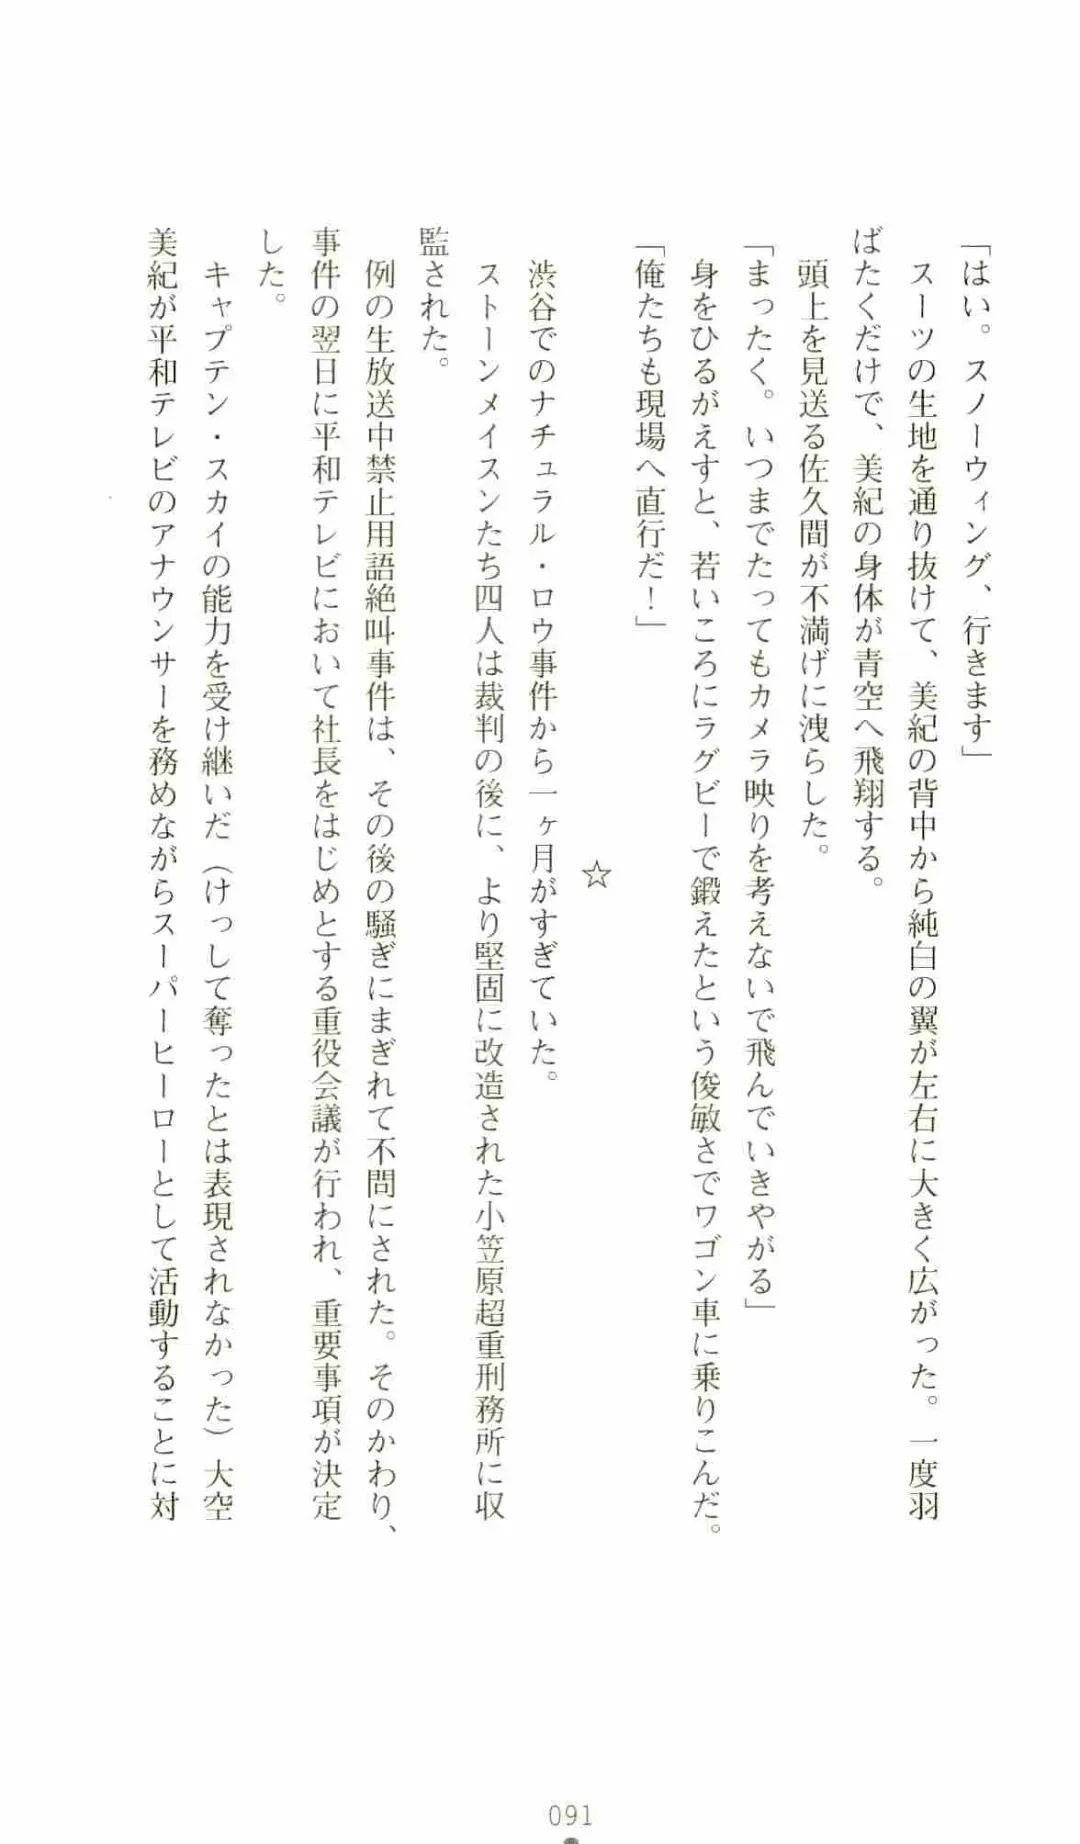 「はい。スノーウィング、行きます」
　スーツの生地を通り抜けて、美紀の背中から純白の翼が左右に大きく広がった。一度羽
ばたくだけで、美紀の身体が青空へ飛翔する。
　頭上を見送る佐久間が不満げに洩らした。
「まったく。いつまでたってもカメラ映りを考えないで飛んでいきやがる」
　身をひるがえすと、若いころにラグビーで鍛えたという俊敏さでワゴン車に乗りこんだ。
「俺たちも現場へ直行だ！」
☆
　渋谷でのナチュラル・ロウ事件から一ヶ月がすぎていた。
　ストーンメイスンたち四人は裁判の後に、より堅固に改造された小笠原超重刑務所に収
監された。
　例の生放送中禁止用語絶叫事件は、その後の騒ぎにまぎれて不問にされた。そのかわり、
事件の翌日に平和テレビにおいて社長をはじめとする重役会議が行われ、重要事項が決定
した。
　キャプテン・スカイの能力を受け継いだ（けっして奪ったとは表現されなかった）大空
美紀が平和テレビのアナウンサーを務めながらスーパーヒーローとして活動することに対
091